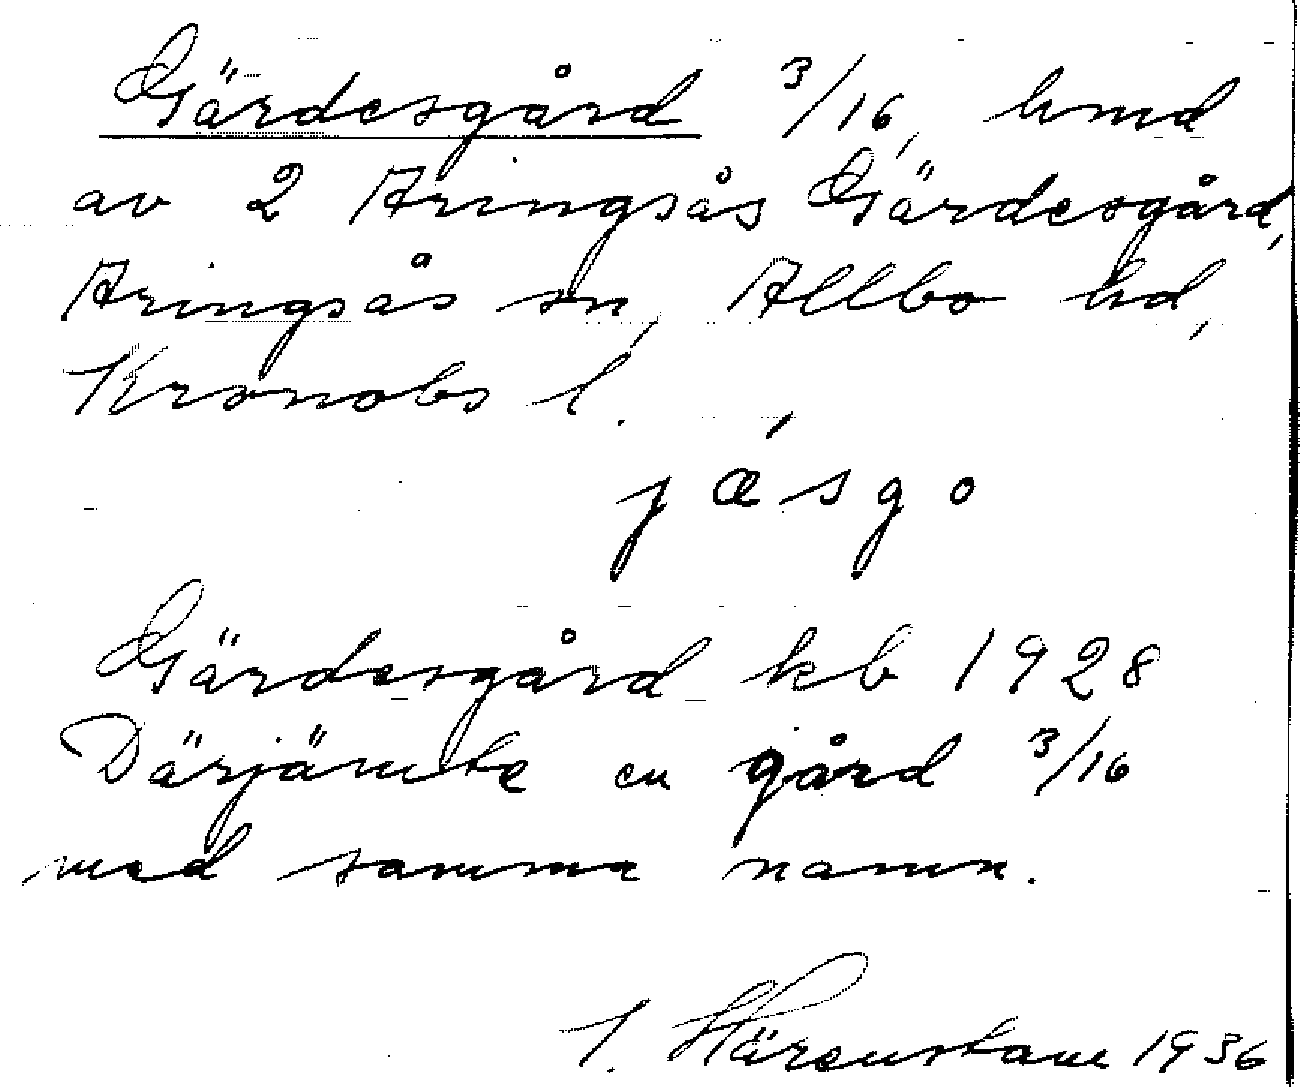 Gärdesgård 3/16, hmd
av 2 Aringsås Gärdesgård,
Aringsås sn, Allbo hd,
Kronobs l.
jásgo
Gärdesgård kb 1928
Därjämte en gård 3/16
med samma namn.
I. Härenstam 1936